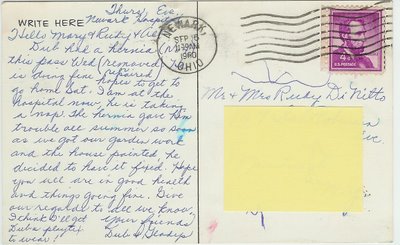 Thurs. Eve.
Newark Hospital
WRITE HERE
Hello Mary & Rudy &
Dub had a hernia
this past Wed (removed)
repaired
is doing fine, hopes to get to
go home Sat. I am at the
hospital now, he is taking
a nap. The hernia gave him
trouble all summer so soon
as we got our garden work
and the house painted, he
decided to have it fixed. Hope
you all are in good health
and things going fine. Give
our regards to all we know.
I think I'll go Your friends
Dub & Gladys
to wear!
NEWARK,
SEP 16
11 30 AM
1960
OHIO
4¢
U.S. POSTAGE
Mr & Mrs Rudy Di Nitto